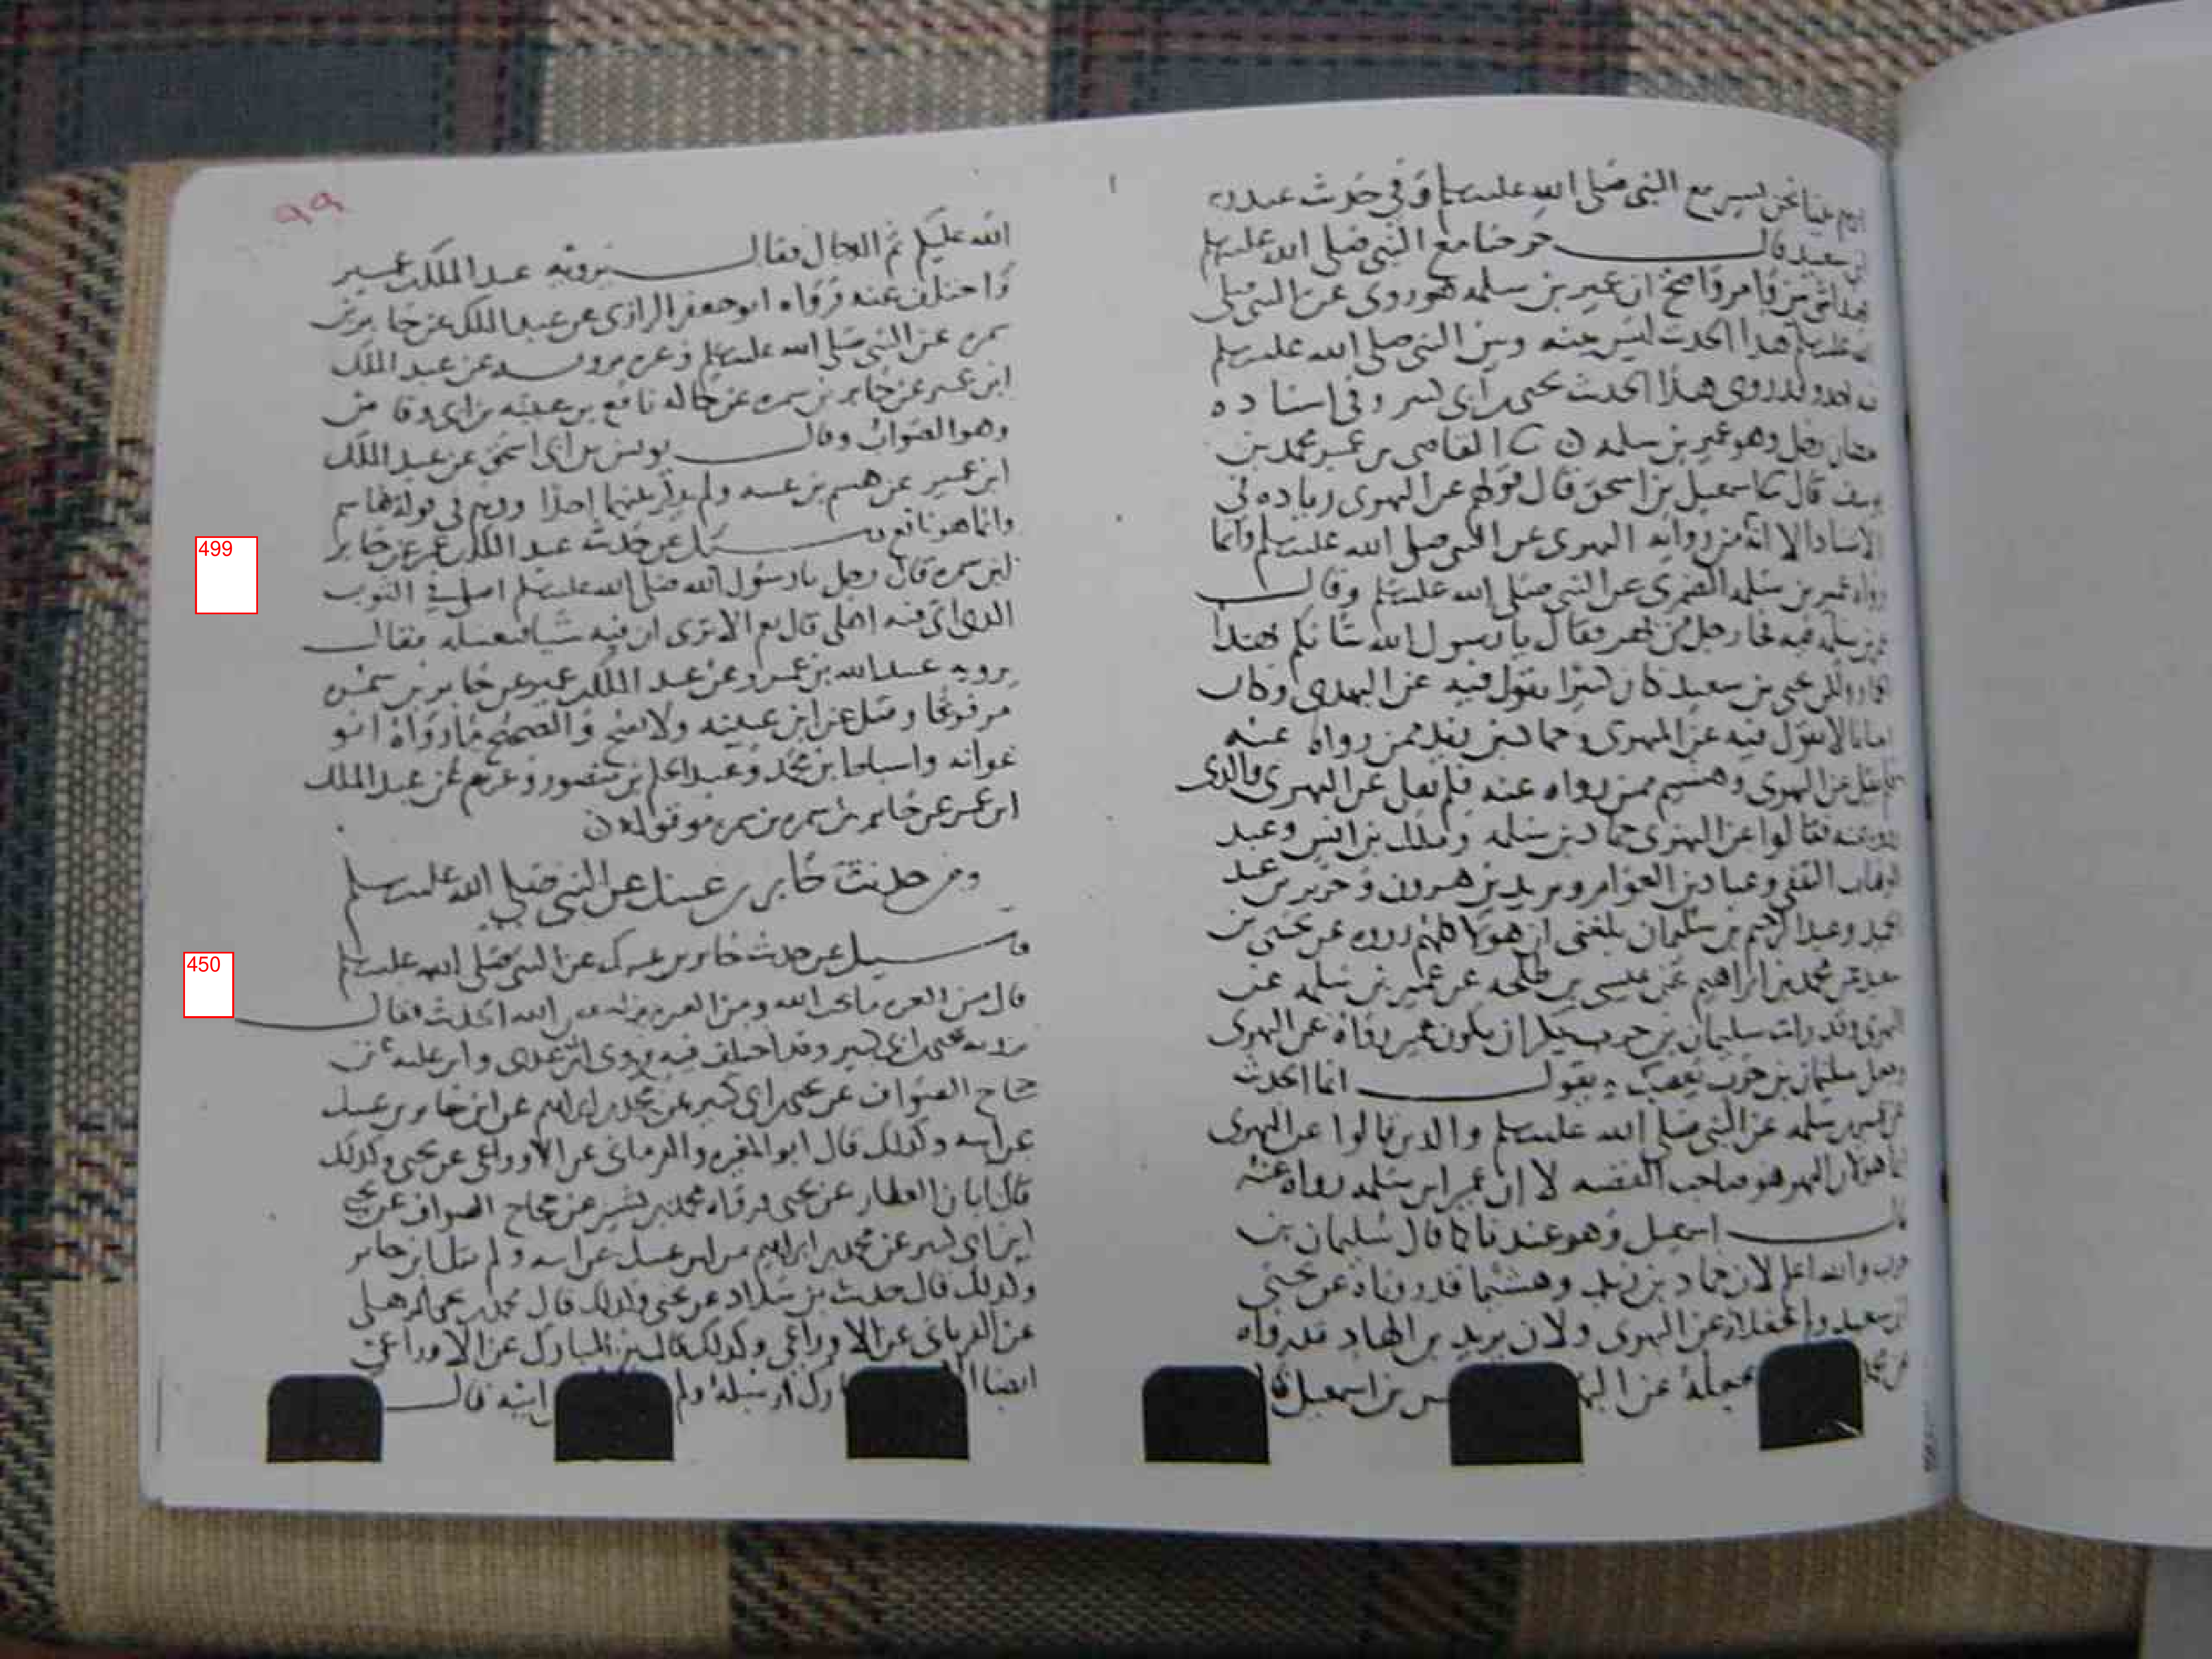 نحن نسير مع النبي صلى الله عليه وسلم وفي حديث عبد ربه
بن سعيد قال خرجنا مع النبي صلى الله عليه وسلم
ان عمير بن سلمه هو روى عن النبي صلى
الله عليه وسلم هذا الحديث ليس بينه وبين النبي صلى الله عليه وسلم
فيه احد وقد روى هذا الحديث يحيى بن ابى كثير وفي اسناده
رجل وهو عمير بن سلمه ن القاضى محمد بن
يوسف قال اسمعيل بن اسحق قال قولهم عن البهزى زياده في
الاسناد الا انه من روايه البهزى عن النبي صلى الله عليه وسلم وانما
رواه عمير بن سلمه الضمرى عن النبي صلى الله عليه وسلم وقال
عمير بن سلمه فيه فجا رجل من بهز فقال يا رسول الله شانكم بهذا
الحمار ولعل يحيى بن سعيد كان كثيرا يقول فيه عن البهزى وكان
احيانا لا يقول فيه عن البهزى وحماد بن زيد ممن رواه عنه
فلم يقل عن البهزى وهشيم ممن رواه عنه فلم يقل عن البهزى والذى
عنه فقالوا عن البهزى حماد بن سلمه وملك بن انس وعبد
الوهاب الثقفى وعباد بن العوام ويزيد بن هرون وجرير بن عبد
الحميد وعبد الرحيم بن سليمان بلغنى ان هولا كلهم رووه عن يحيى بن
سعيد عن محمد بن ابراهيم عن عيسى بن طلحه عن عمير بن سلمه عن
البهزى وقد رايت سليمان بن حرب ينكر ان يكون عمير رواه عن البهزى
وجعل سليمان بن حرب يغضب ويقول انما الحديث
عن عمير بن سلمه عن النبي صلى الله عليه وسلم والذين قالوا عن البهزى
انما هو ان البهزى هو صاحب القصه لا ان عمير ابن سلمه رواه عنه
قال اسمعيل وهو عندنا كما قال سليمان بن
حرب والله اعلم لان حماد بن زيد وهشيما قد روياه عن يحيى
بن سعيد ولم يجعلاه عن البهزى ولان يزيد بن الهاد قد رواه
عن محمد يجعله عن بن اسمعيل قال
٩٩
الله عليه وسلم ثم الدجال فقال يرويه عبد الملك بن عمير
واختلف عنه فرواه ابو جعفر الرازى عن عبد الملك عن جابر بن
سمره عن النبي صلى الله عليه وسلم وغيره يرويه عن عبد الملك
ابن عمير عن جابر بن سمره عن خاله نافع بن عتبه بن ابى وقاص
وهو الصواب وقال يونس بن ابى اسحق عن عبد الملك
ابن عمير عن هشم بن عتبه ولم يذكر بينهما احدا ووهم في قوله هاشم
وانما هو نافع ن سئل عن حديث عبد الملك بن عمير عن جابر
ابن سمره قال رجل يا رسول الله صلى الله عليه وسلم اصلى في الثوب
الذى اتى فيه اهلى قال نعم الا ان ترى ان فيه شيا فتغسله فقال
يرويه عبيد الله بن عمرو عن عبد الملك بن عمير عن جابر بن سمره
مرفوعا وقيل عن ابن عيينه ولا يصح والصحيح ما رواه ابو
عوانه واسباط بن محمد وعبد الحكيم بن منصور وغيرهم عن عبد الملك
ابن عمير عن جابر بن سمره موقوفا ن
ومن حديث جابر بن عتيك عن النبي صلى الله عليه وسلم
499
سئل عن حديث جابر بن عتيك عن النبي صلى الله عليه وسلم
450
قال من الغيره ما يحب الله ومن الغيره ما يبغض الله الحديث فقال
يرويه يحيى بن ابى كثير وقد اختلف فيه فروى ابن عدى وابن عليه عن
حجاج الصواف عن يحيى بن ابى كثير عن محمد بن ابراهيم عن ابن جابر بن عتيك
عن ابيه وكذلك قال ابو المغيره والفريابى عن الاوزاعى عن يحيى وكذلك
قال ابان العطار عن يحيى ورواه محمد بن بشير عن حجاج الصواف عن يحيى
ابن ابى كثير عن محمد بن ابراهيم عن ابن عتيك عن ابيه ولم يقل ابن جابر
وكذلك قال حرب بن شداد عن يحيى وكذلك قال محمد بن
عن الفريابى عن الاوزاعى وكذلك قال ابن المبارك عن الاوزاعى
ايضا ولم ابيه قال